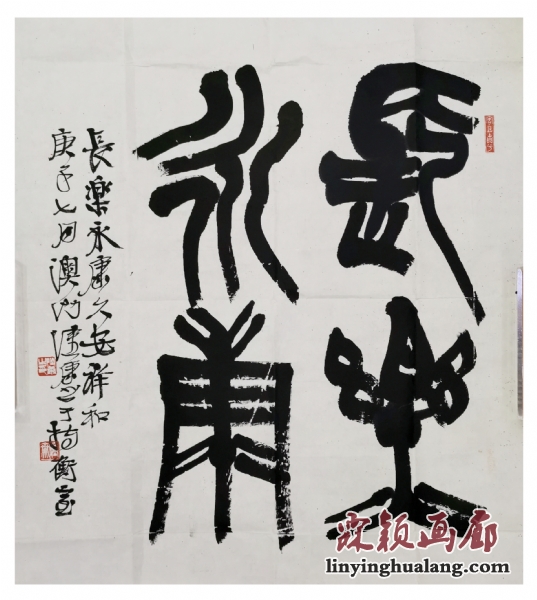 長樂
永康
長樂永康久安祥和
庚子七月澳門 于 衡室
霖颖画廊
linyinghualang.com